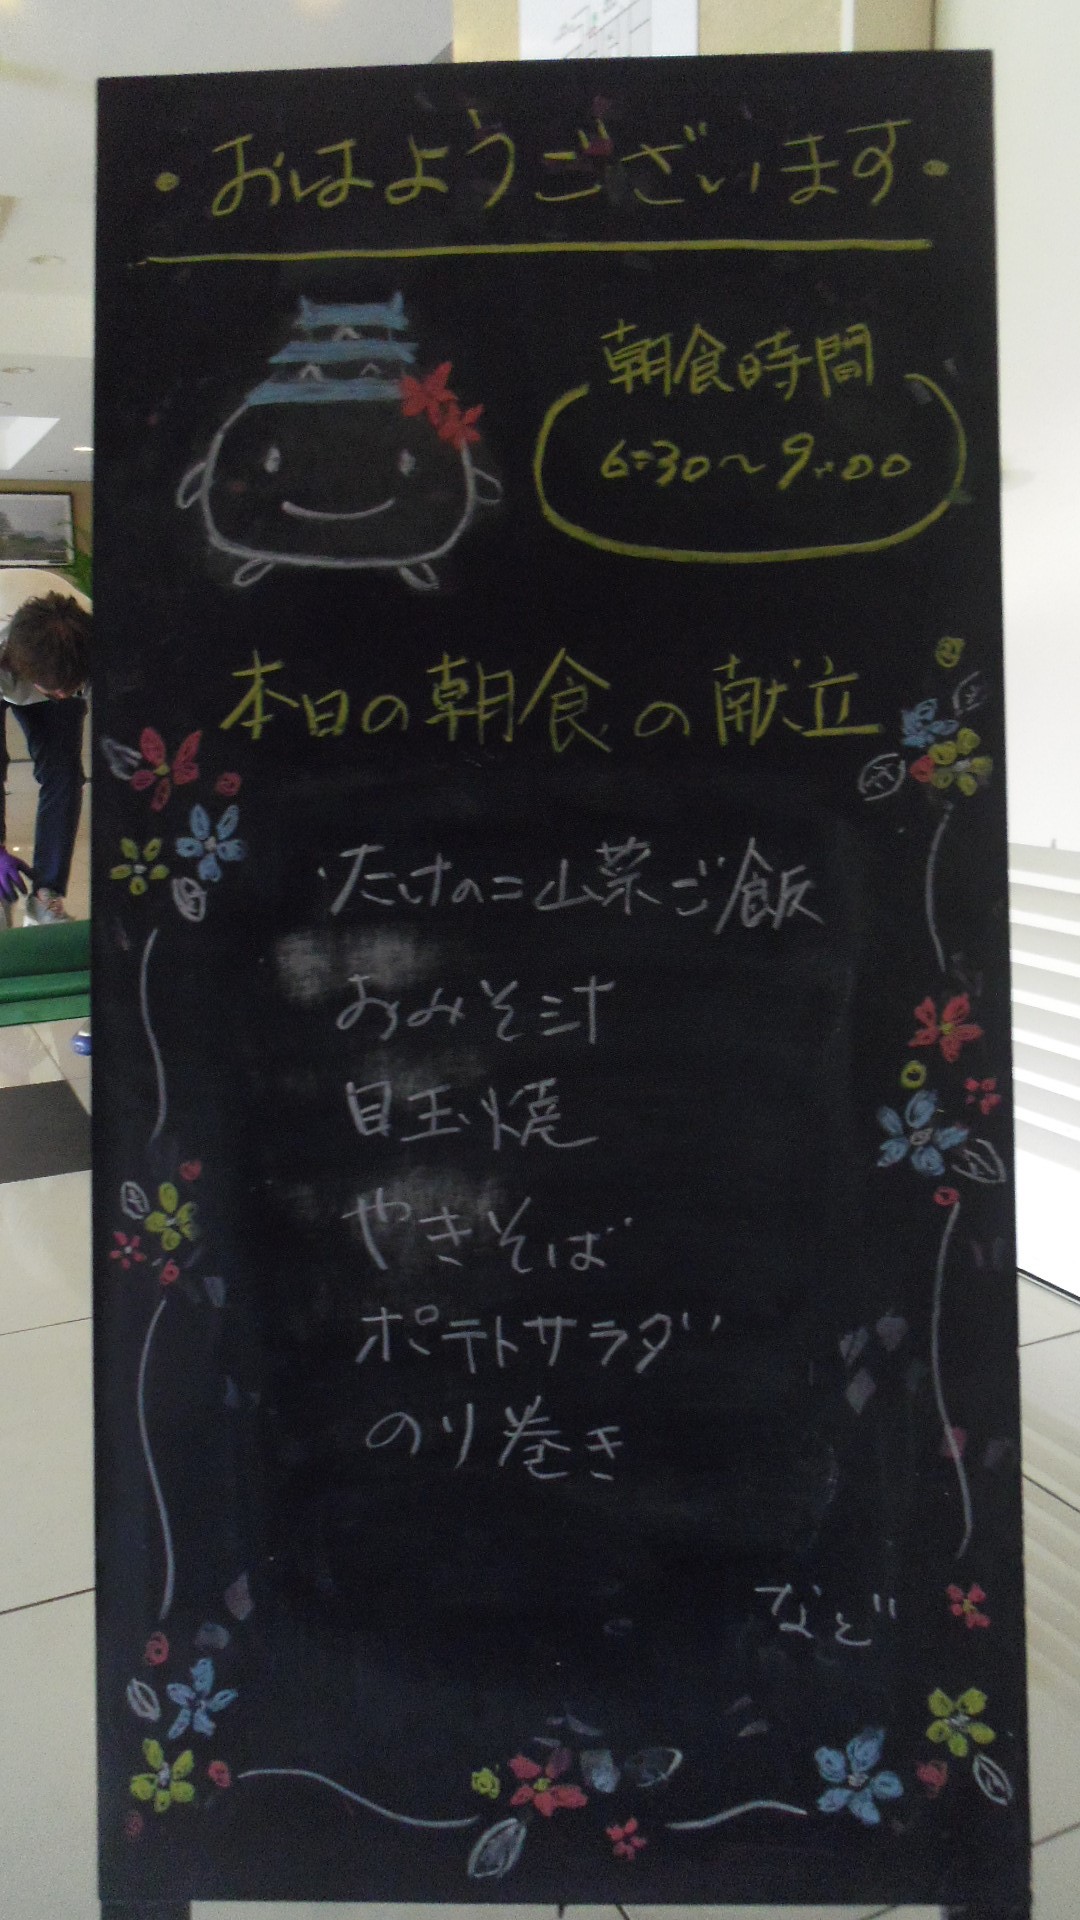 ・おはようございます・
朝食時間
6:30～9:00
本日の朝食の献立
たけのこ山菜ご飯
おみそ汁
目玉焼
やきそば
ポテトサラダ
のり巻き
など